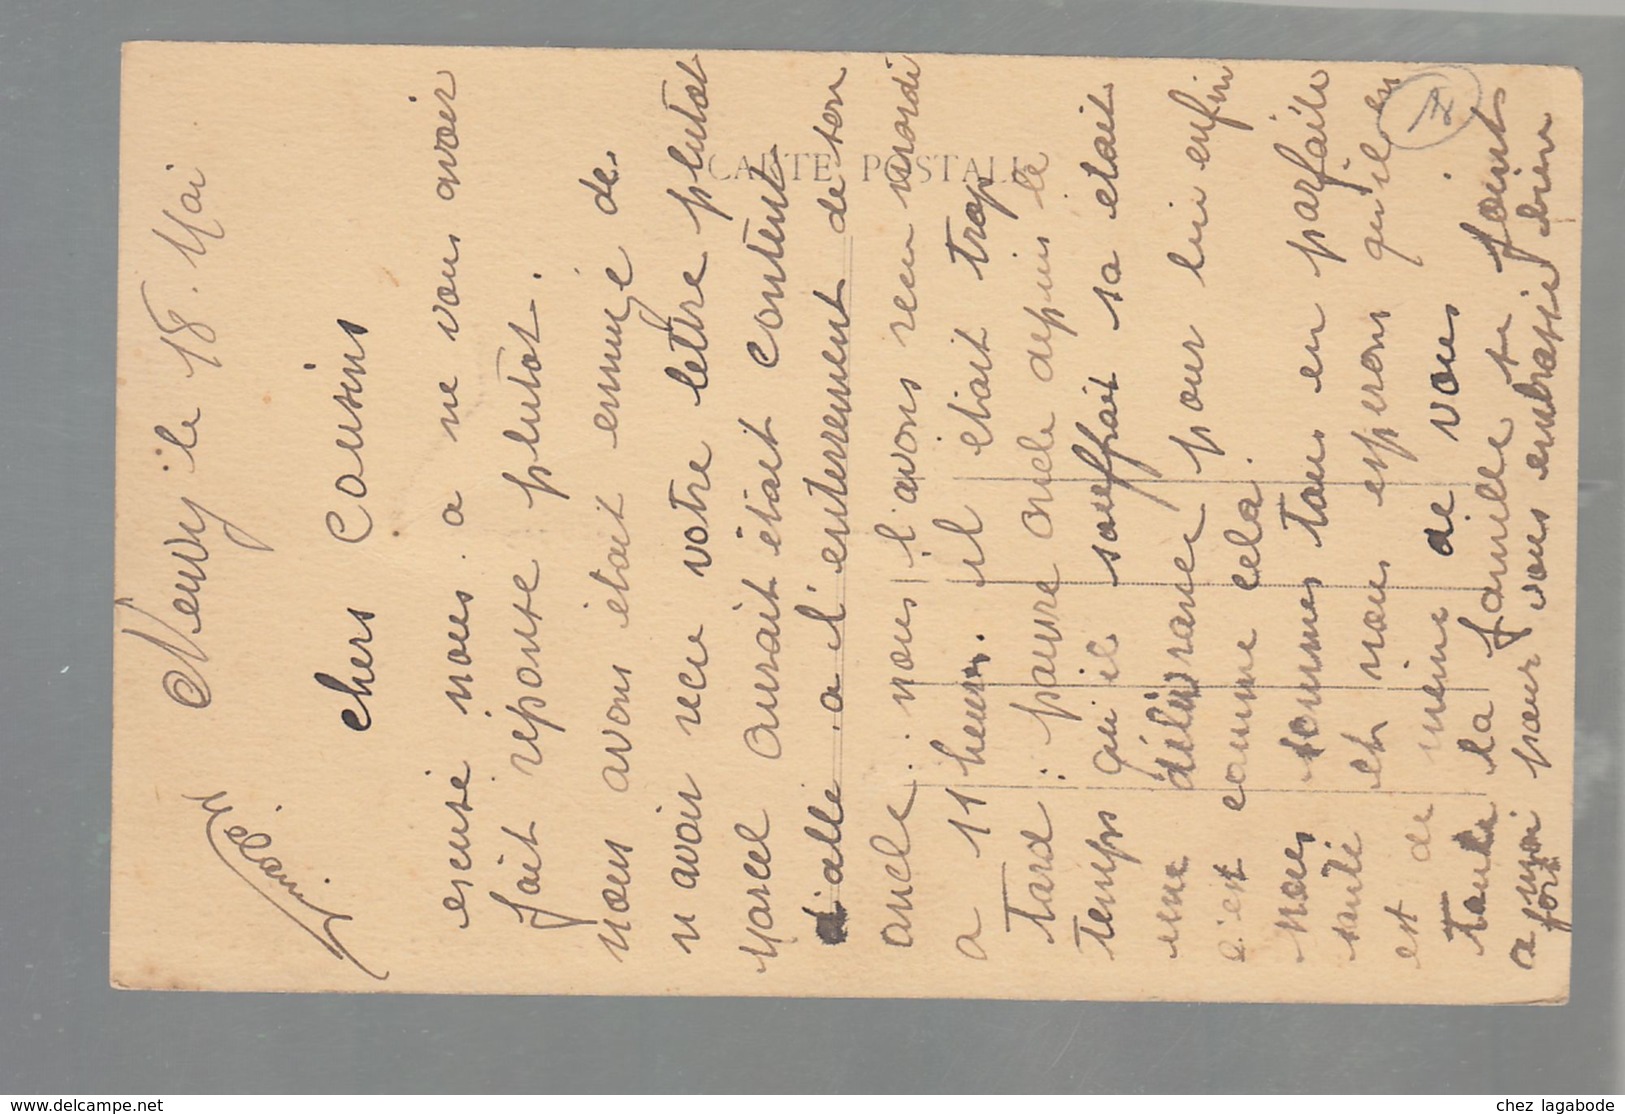 Neuvy le 18. Mai
chers cousins
escuse nous a ne vous avoir
fait réponse plutot.
nous avons étoit ennuyé de
n'avoir recu votre lettre plutot
Marcel aurait était content
d'allé a l'enterrement de son
oncle. nous l'avons recu mardi
a 11 heures. il était trop
Tard : pauvre oncle depuis le
Temps qu'il souffrait sa etait
une délivrance pour lui enfin
c'est comme cela.
nous sommes tous en parfaite
santé et nous esperons qu'il en
est de même de vous.
toute la famille se joint
a moi pour vous embrassé bien
fort
CARTE POSTALE
www.delcampe.net
chez lagabode